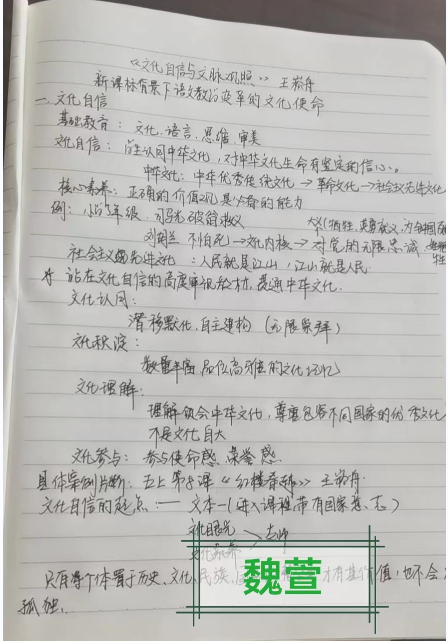 《文化自信与文脉观照》 王崧舟
新课标背景下语文教学变革的文化使命
一、文化自信
基础教育：文化、语言、思维、审美
文化自信：学生认同中华文化，对中华文化生命有坚定的信心。
中华文化：中华优秀传统文化→革命文化→社会主义先进文化
核心素养：正确的价值观 必备的能力
例：小1年级.司马光破瓮救友
刘胡兰 不怕死→文化内核→对党的无限忠诚
社会主义先进文化：人民就是江山，江山就是人民
站在文化自信的高度审视教材，贯通中华文化.
文化认同：
潜移默化，自主建构（无限崇拜）
文化积淀：
数量丰富 品位高雅的文化记忆
文化理解：
理解领会中华文化，尊重包容不同国家的优秀文化
不是文化自大
文化参与：参与使命感.荣誉感
具体案例片断：五上第8课《红楼春趣》 王崧舟
文化自信的起点：— 文本—（进入课程，带有国家意志）
文化眼光
只有将个体置于历史、文化、民族、才有其价值，也不会
孤独.
魏萱